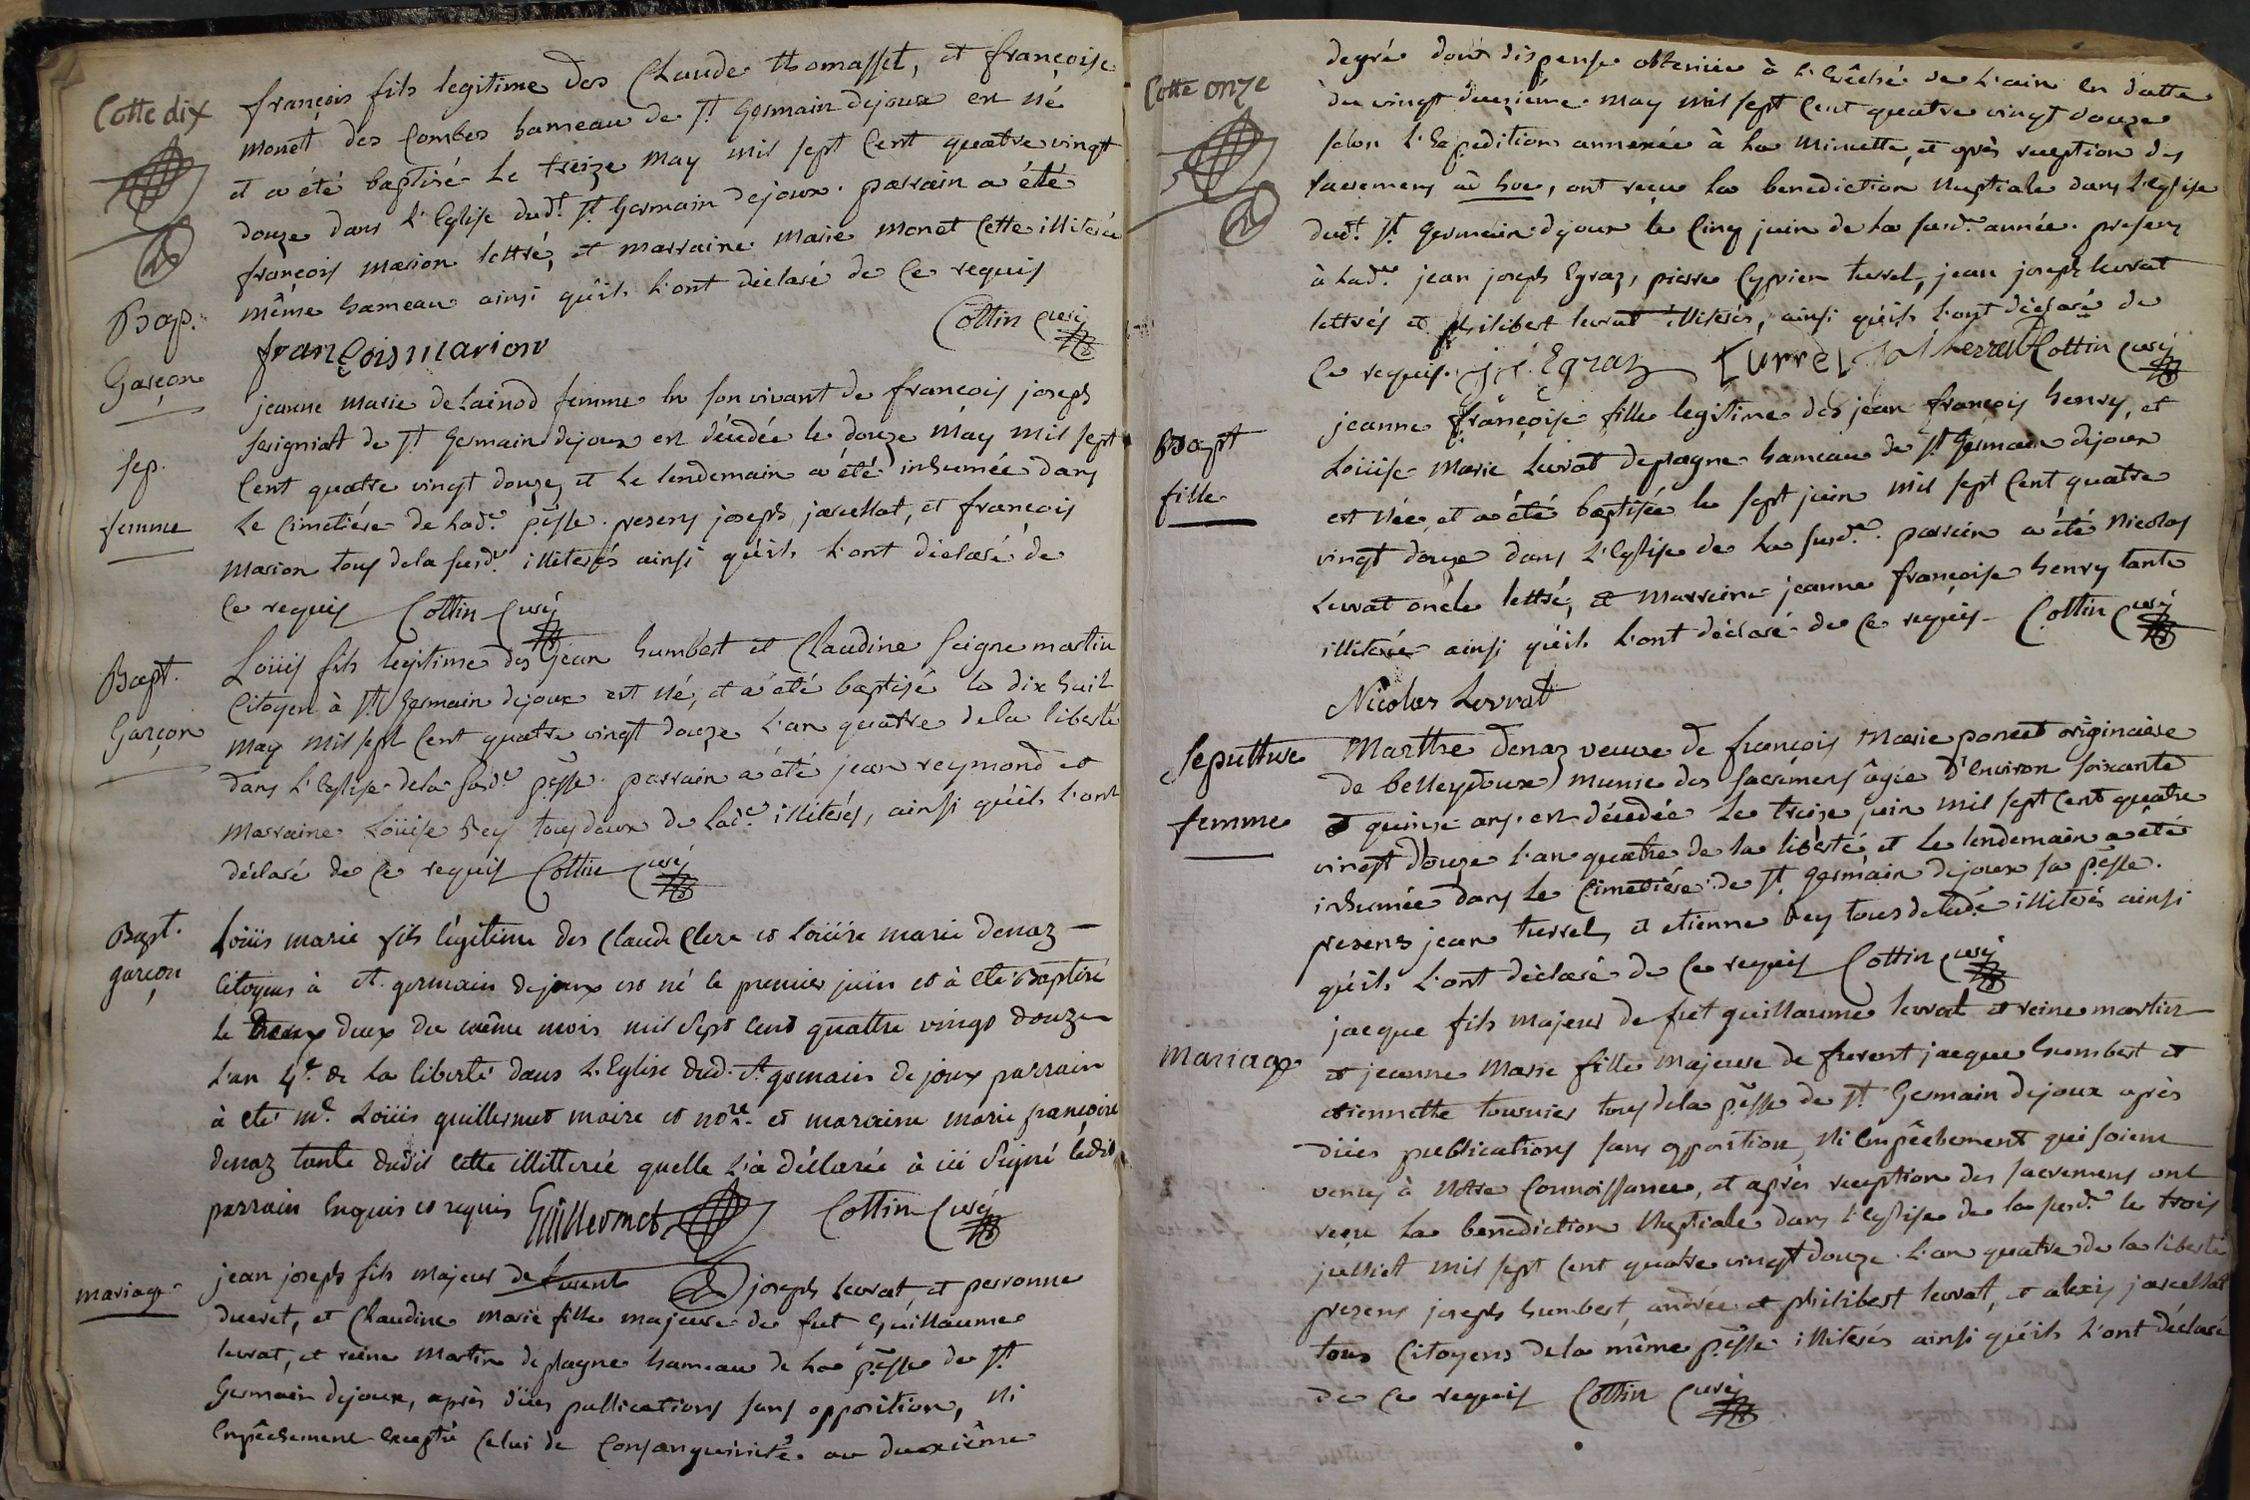 Cotte dix
françois fils legitime des Claude thomasset, et françoise
monet des Combes hameau de St. Germain dejoux est né
et a été baptisé le treize may mil sept Cent quatre vingt
douze dans l'Eglise dudt. St. Germain dejoux. parrain a été
françois marion lettré, et marraine marie monet Cette illiterée
même hameau ainsi qu'ils l'ont déclaré de Ce requis
Bap.
Garçon
Cottin Curé
françois marion
sep.
femme
jeanne marie delainod femme en son vivant de francois joseph
de St. Germain dejoux est décédée le douze may mil sept
Cent quatre vingt douze, et le lendemain a été inhumée dans
le Cimetiére de lade. psse. presens joseph jarcellat, et francois
marion tous dela susde. illiterés ainsi qu'ils l'ont déclaré de
Ce requis Cottin Curé
Bapt.
Garçon
Loüis fils legitime des Jean humbert et Claudine Seigne martin
Citoyen à St. Germain dejoux est né, et a été baptisé le dix huit
may mil sept Cent quatre vingt douze l'an quatre dela liberté
dans l'Eglise dela susde. psse. parrain a été jean reymond et
marraine Loüise Rey tous deux de lade. illiterés, ainsi qu'ils l'ont
déclaré de Ce requis Cottin Curé
Bapt.
garçon
Loüis marie fils légitime des Claude Clerc et Loüise marie Denaz
Citoyens à St. germain dejoux est né le premier juin et à eté Baptisé
le deux du même mois mil sept cent quattre vingt douze
L'an 4e. de la liberté dans L'Eglise dud. St. germain de joux parrain
à eté me. Loüis guillermet maire et nore. et maraine marie francoise
Denaz tante dudit cette illitterée quelle l'à déclarée à ici signé ledit
parrain enquis et requis Guillermet Cottin Curé
mariage
jean joseph fils majeur de joseph Levrat et perronne
ducret, et Claudine marie fille majeure de fut Guillaume
levrat, et reine Martin de plagne hameau de la psse de St
Germain dejoux, après düés publications sans opposition, ni
Empêchement excepté Celui de Consanguinité au deuxiême
Cotte onze
degré dont dispense obtenüe à l'Evêché de l'ain en datte
du vingt deuxiéme may mil sept Cent quatre vingt douze
selon l'Expedition annexée à la minutte, et après reception des
sacremens ad hoc, ont reçu la benediction nuptiale dans l'eglise
dudt. St. Germain dejoux le Cinq juin de la susde. année. presens
à lade. jean joseph Egraz, pierre Cyprien turrel, jean joseph levrat
lettrés et philibert levrat illiterés, ainsi qu'ils l'ont déclaré de
Ce requis. j j Egraz turrel Cottin Curé
Bapt
fille
jeanne françoise fille legitime des jean françois henry, et
Loüise Marie Levrat deplagne hameau de St. Germain dejoux
est née, et a été baptisée le sept juin mil sept Cent quatre
vingt douze dans l'Eglise de la susde. parrain a été Nicolas
Levrat oncle lettré, et marreine jeanne françoise henry tante
illiterée ainsi qu'ils l'ont déclaré de Ce requis Cottin Curé
Nicolas Levrat
Sepulture
femme
Marthe denaz veuve de françois Marie poncet originaire
de belleydoux munie des sacrémens âgée d'Environ soixante
et quinze ans est décédée le treize juin mil sept Cent quatre
vingt douze l'an quatre de la liberté, et le lendemain a été
inhumée dans le Cimetiére de St. Germain dejoux sa psse.
presens jean turrel, et etienne Rey tous de lade illiterés ainsi
qu'ils l'ont déclaré de Ce requis Cottin Curé
Mariage
jacque fils majeur de fut guillaume levrat et reine martin
et jeanne Marie fille Majeure de furent jacque humbert et
etiennette tournier tous dela psse de St. Germain dejoux après
düés publications sans opposition, Ni Empêchement qui soient
venus à Notre Connoissance, et après reception des sacremens ont
reçu la benediction Nuptiale dans l'eglise de la susde. le trois
juilliet mil sept Cent quatre vingt douze l'an quatre de la liberté
presens joseph humbert, andrée et philibert levrat, et alexis jarcellat
tous Citoyens de la même psse illiterés ainsi qu'ils l'ont déclaré
de Ce requis Cottin Curé